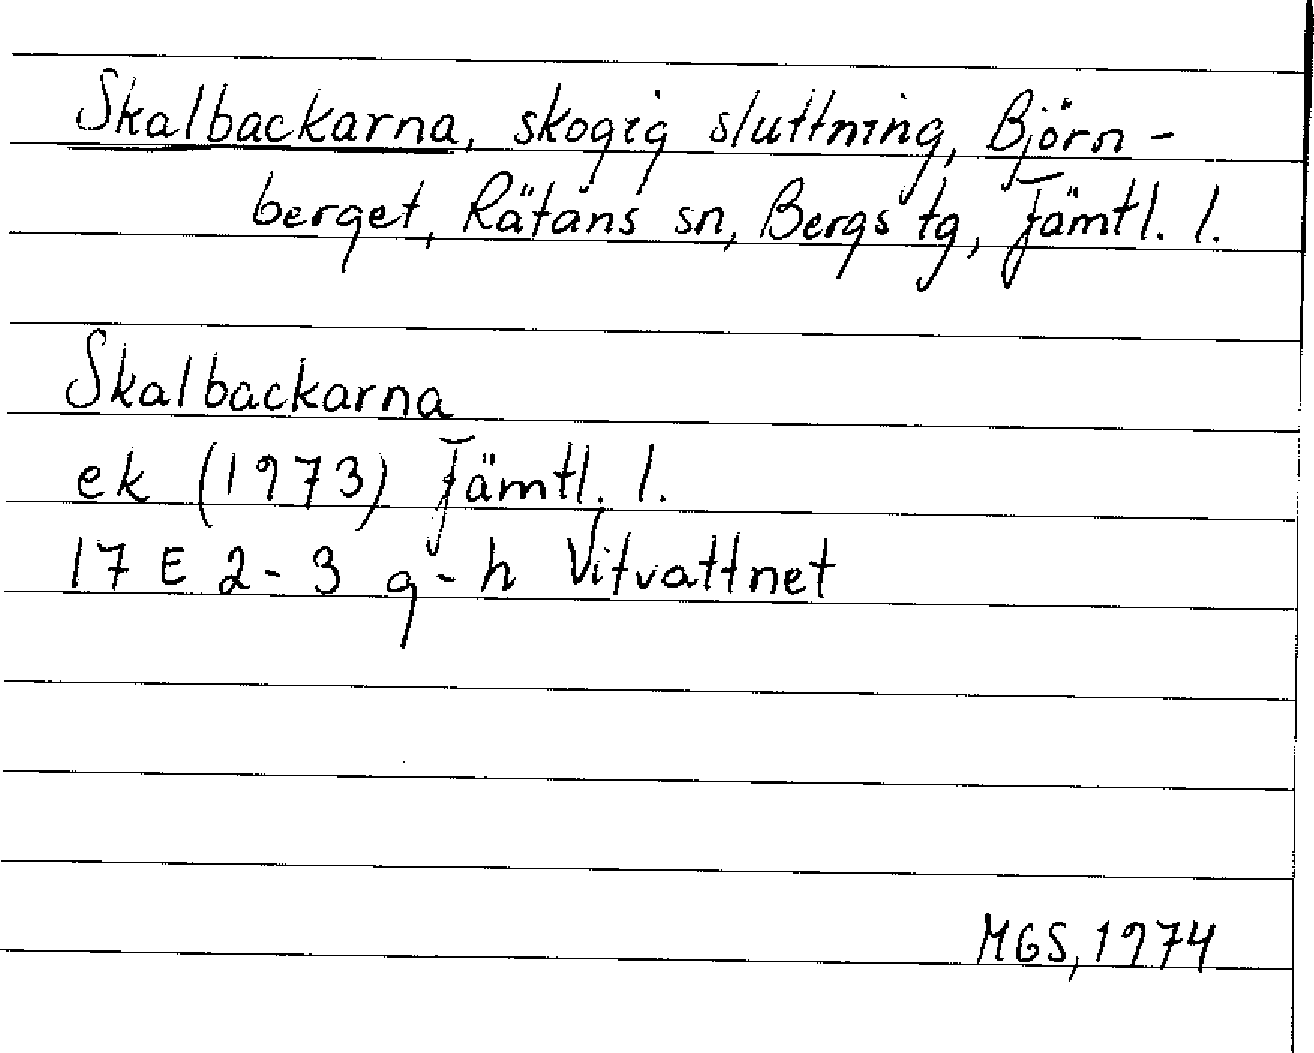 Skalbackarna, skogig sluttning, Björn-
berget, Rätans sn, Bergs tg, Jämtl. l.
Skalbackarna
ek (1973) Jämtl. l.
17 E 2-3 g-h Vitvattnet
MGS, 1974